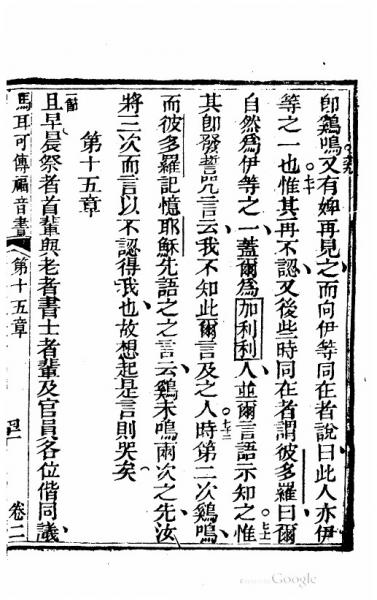 即鷄鳴又有婢再見之而向伊等同在者說曰此人亦伊
等之一也惟其再不認又後些時同在者謂彼多羅曰爾
自然為伊等之一蓋爾為加利利人並爾言語示知之惟
其即發誓咒言云我不知此爾言及之人時第二次鷄鳴
而彼多羅記憶耶穌先語之之言云鷄未鳴兩次之先汝
將三次而言以不認得我也故想起是言則哭矣
第十五章
一節
且早晨祭者首輩與老者書士者輩及官員各位偕同議
馬耳可傳福音書 第十五章 卷二
Google